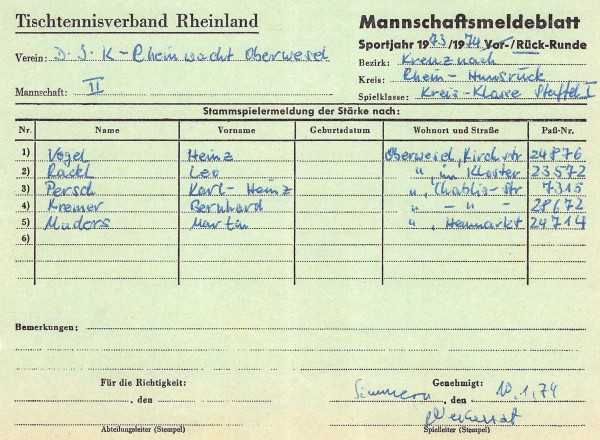 Tischtennisverband Rheinland
Mannschaftsmeldeblatt
Sportjahr 1973/1974 Vor-/Rück-Runde
Verein: D.J.K-Rheinwacht Oberwesel
Bezirk: Kreuznach
Kreis: Rhein-Hunsrück
Mannschaft: II
Spielklasse: Kreis-Klasse Staffel I
Stammspielermeldung der Stärke nach:
Nr. Name Vorname Geburtsdatum Wohnort und Straße Paß-Nr.
1) Vogel Heinz Oberwesel, Kirchstr 24876
2) Rackl Leo ", im Kloster 23572
3) Persch Karl-Heinz ", Chablis-str 7315
4) Kremer Bernhard " - " - 28672
5) Muders Martin ", Heumarkt 24714
6)
Bemerkungen:
Für die Richtigkeit: Genehmigt:
, den Simmern, den 10.1.74
Abteilungsleiter (Stempel) Spielleiter (Stempel)